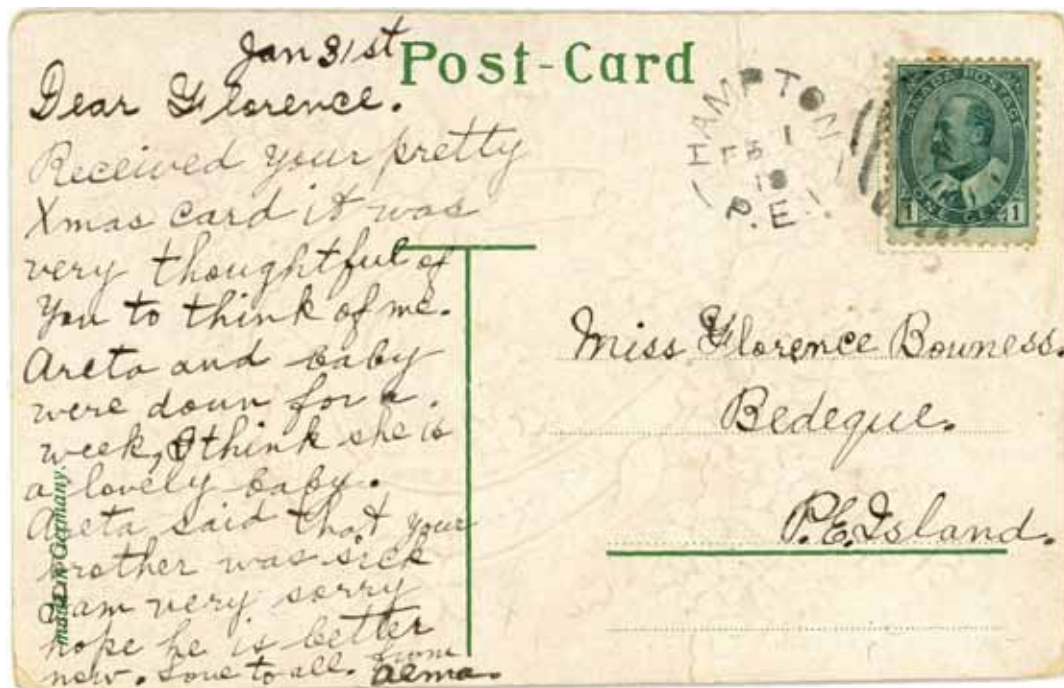 Post-Card
Jan 31st
Dear Florence.
Received your pretty
Xmas card it was
very thoughtful of
You to think of me.
Areta and baby
were down for a
week, I think she is
a lovely baby.
Areta said that your
brother was sick
I am very sorry
hope he is better
now. Love to all. from
Alma.
made in Germany.
HAMPTON
FE 1
P.E.I
CANADA POSTAGE
1 ONE CENT 1
Miss Florence Bowness.
Bedeque.
P.E.Island.